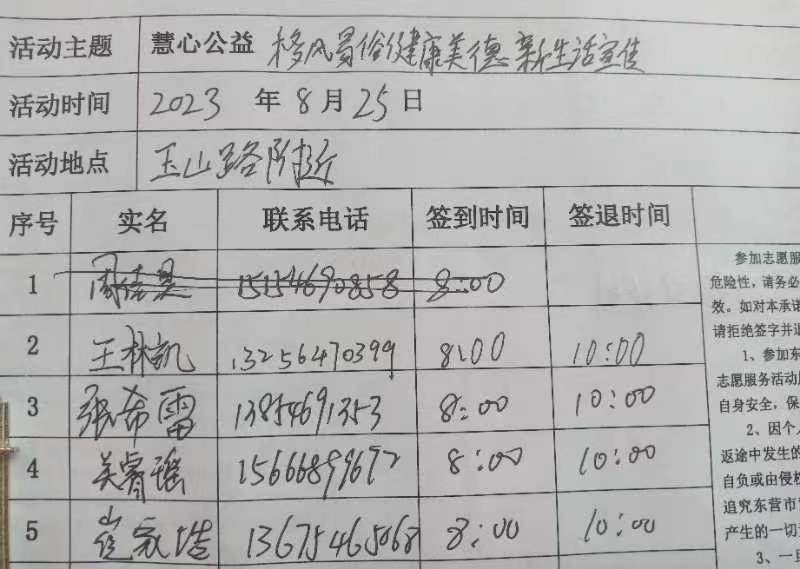 活动主题 慧心公益 移风易俗健康美德新生活宣传
活动时间 2023 年 8 月 25 日
活动地点 玉山路附近
序号 实名 联系电话 签到时间 签退时间
1 15154690858 8:00
2 王林凯 13256470399 8:00 10:00
3 张希雷 13854691353 8:00 10:00
4 吴睿瑶 15666899672 8:00 10:00
5 崔家浩 13675465068 8:00 10:00
参加志愿服
危险性，请务必
效。如对本承诺
请拒绝签字并退
1、参加东
志愿服务活动
自身安全，保
2、因个人
返途中发生的
自负或由侵权
追究东营市
产生的一切
3、一旦